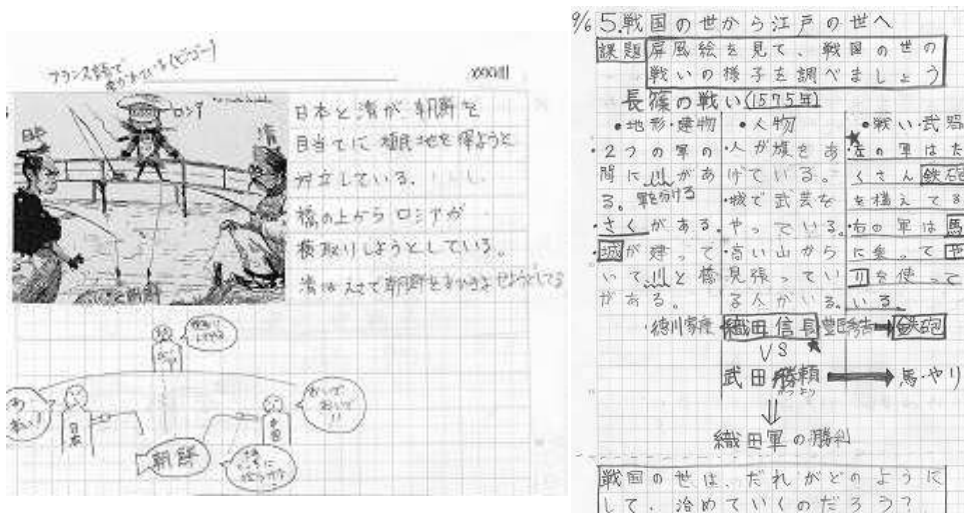 フランス語で
ロシア
清
日本と清が、朝鮮を
目当てに植民地を得ようと
対立している。
橋の上からロシアが
横取りしようとしている。
おいで
おいで
!!
日本
中国
朝鮮
9/6 5.戦国の世から江戸の世へ
課題 屏風絵を見て、戦国の世の
戦いの様子を調べましょう
長篠の戦い(1575年)
・地形・建物
・2つの軍の
間に川があ
る。軍を分ける
・さくがある。
・城が建って
いて川と橋
がある。
・人物
・人が旗をあ
げている。
・城で武芸を
やっている。
・高い山から
見張ってい
る人がいる。
・戦い・武器
★左の軍はた
くさん鉄砲
を構えてる
・右の軍は馬
に乗って
刀を使って
いる。
・徳川家康・織田信長 豊臣秀吉→鉄砲
VS ★
武田勝頼→馬・やり
かつより
織田軍の勝利
戦国の世は、だれがどのように
して、治めていくのだろう?